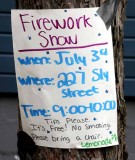 Firework
Show
when: July 3rd
where: 227 Sly
street
Time: 9:00-10:00
Tips Please
It's Free! No Smoking
Please bring a chair.
Lemonade